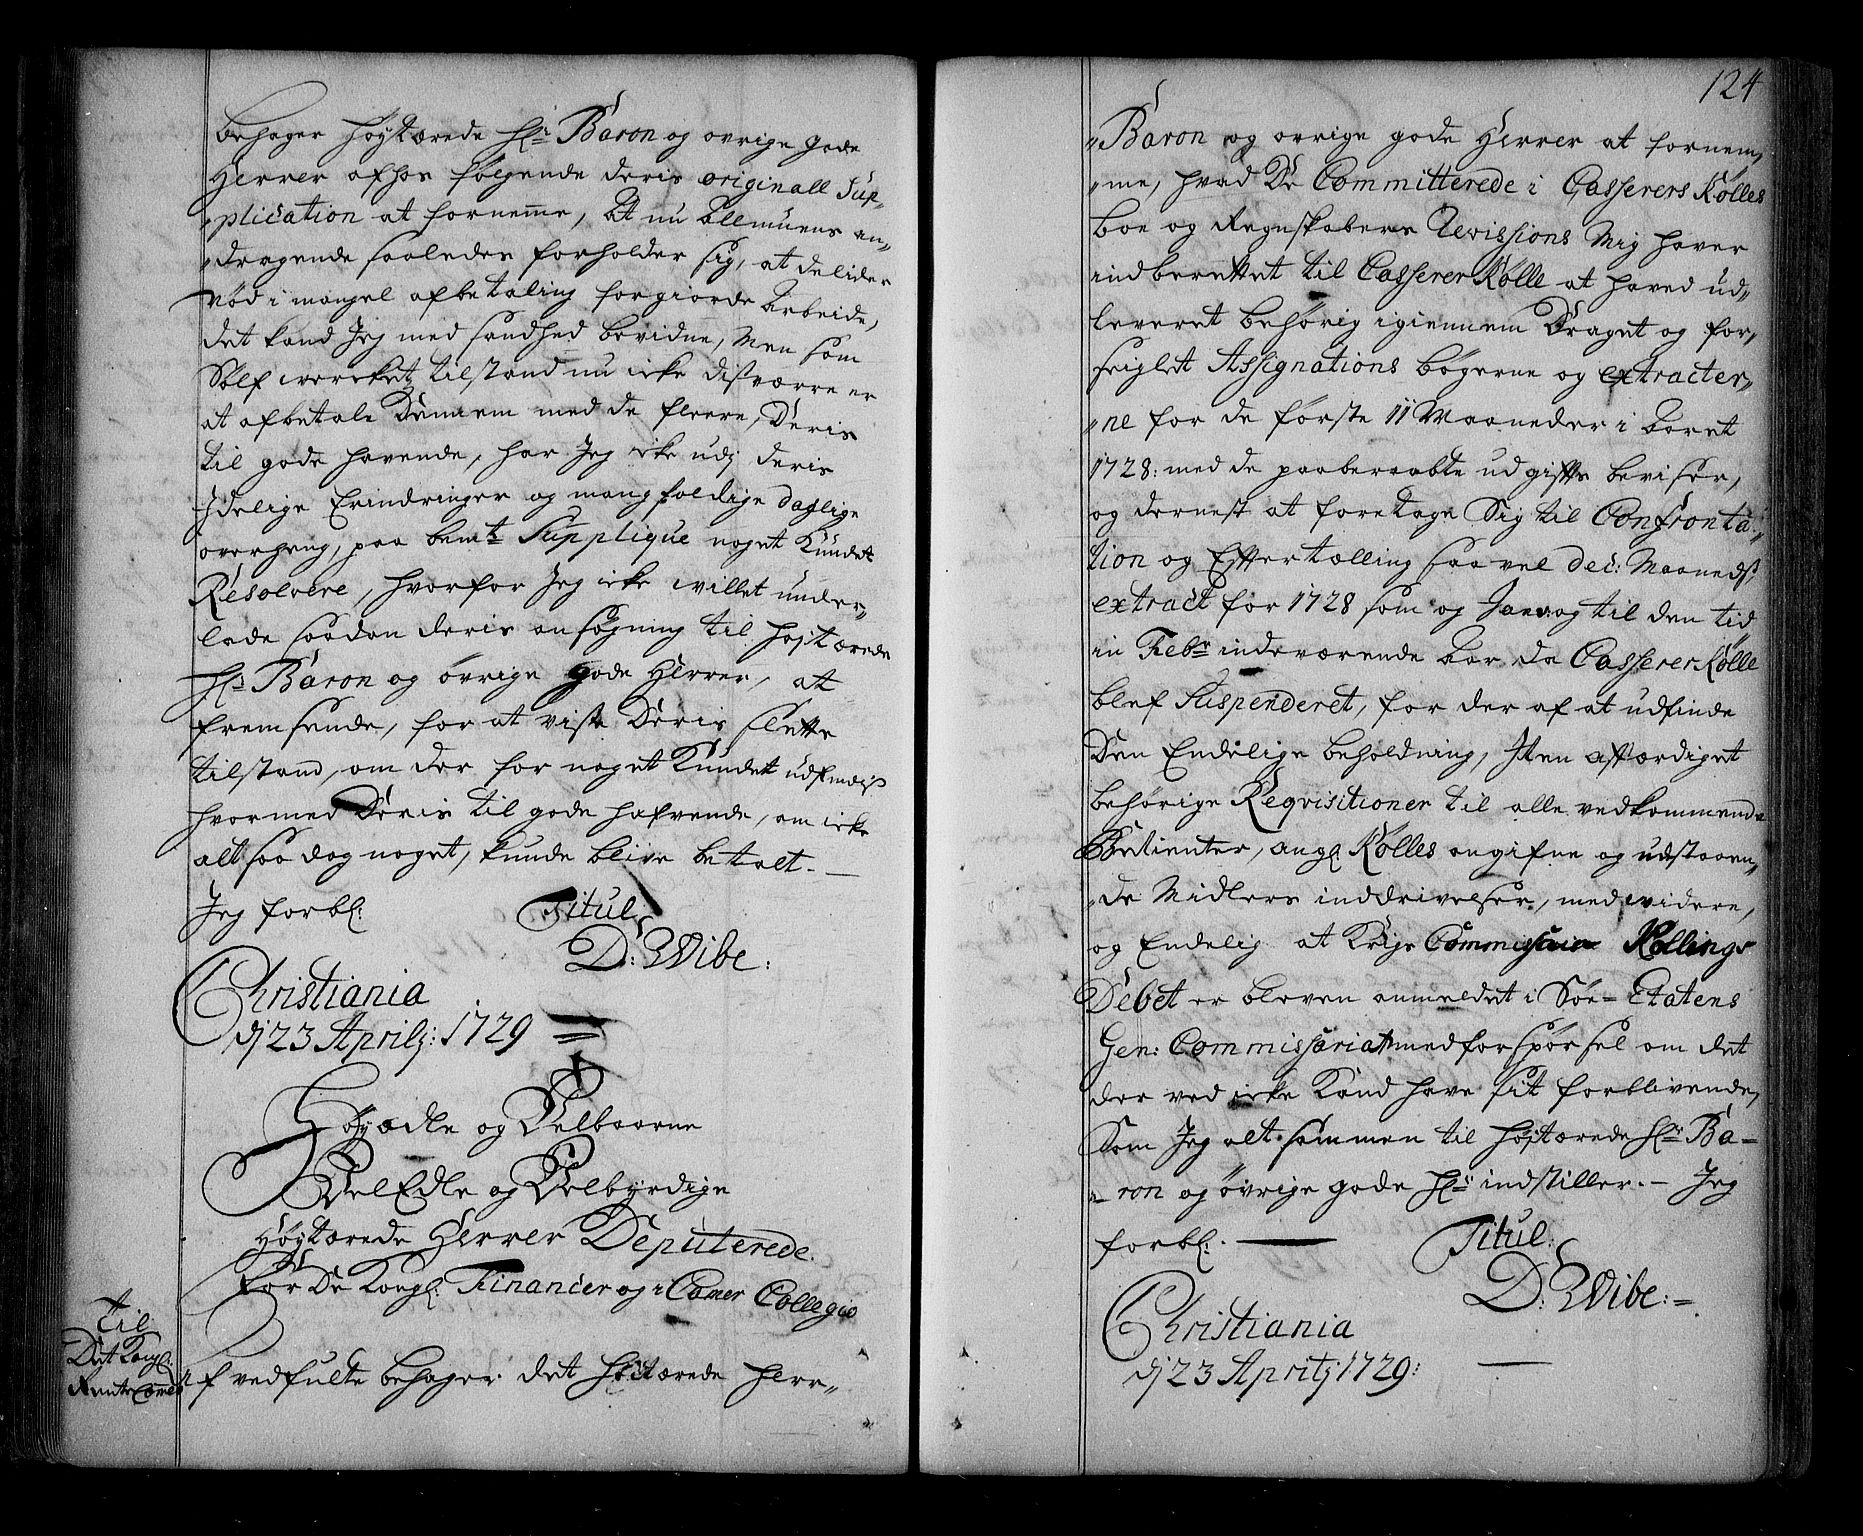 behager høÿtærede Hr: Baron og øvrige gode
Herrer af hos følgende deris originall Sup„
„plication at fornemme, At nu Allmuens an„
„dragende saaledes forholder sig, at de lider
nød i mangel af betaling for giorde Arbeide,
det kand Jeg med sandhed bevidne, Men som
Sølf werckets tilstand nu icke disværre er
at afbetale Dennem med de fleere, Deris
til gode havende, har Jeg icke udj deris
Idelige Erindringer og mangfoldige daglige
overheng, paa bemte Supplique noget Kundet
Resolvere, hvorfor Jeg icke willet under„
lade saadan deris ansøgning til højtærede
Hr: Baron og øvrige gode Herrer, at
fremsende, for at viste Deris slette
tilstand, om der for noget Kundet udfindis
hvormed Deris til gode hafvende, om icke
alt saa dog noget, kunde blive betalt. —
Jeg forbl: Titul:
D: Wibe:
Christiania
dj 23 Aprilj: 1729
Høyædle og Velbaarne
VelEdle og Velbyrdige
Høÿtærede Herrer Deputerede
for De Kongl: Financier og i Camer Collegio
Til
Det Kongl:
Rente Camer
Af vedfulte behager det høitærede Herr„
124
„Baron og øvrige gode Herrer at fornem„
„me, hvad De Committerede i Casserers Kølles
boe og Regnskabers Revissions Mig haver
indberettet til Casserer Kølle at haved ud„
leveret behørig igiennem Draget og for„
seiglet Assignations bøgerne og extracter„
„ne for de første 11 Maaneder i Aaret
1728: med de paaberaabte udgifts beviser,
og dernest at foretage Sig til Confronta„
tion og Efter tælling saa vel Dec: Maaneds
extract for 1728 som og Janu: og til den tid
in Febr: indeværende Aar da Casserer Kølle
blef Suspenderet, for der af at udfinde
Den Endelige beholdning, Iten affærdiget
behørige Reqvisitioner til alle vedkommende
Betienter, ang: Kølles angifne og udstaaen„
„de Midlers inddrivelser, med widere,
og Endelig at Krigs Commissair Kollings
Debet er bleven anmeldet i Søe-Etatens
Gen: Commissariat med forspørsel om det
der ved icke Kand have sit forblivende,
Som Jeg alt sammen til højtærede Hr: Ba-
„ron og øvrige gode Hr: indstiller. — Jeg
forbl: Titul:
D: Wibe:
Christiania
dj 23 Aprilj 1729: